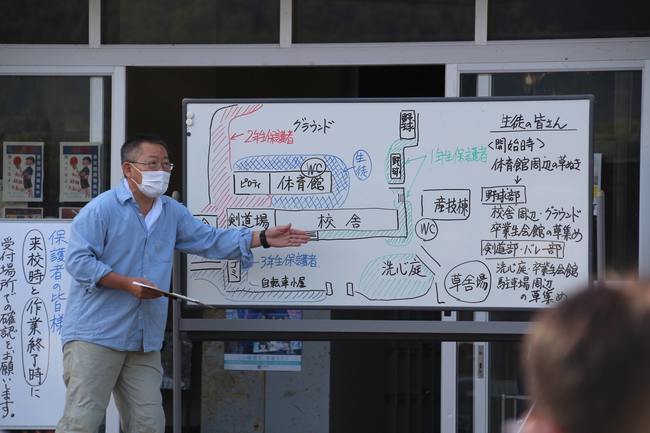 グラウンド
2年生保護者
ピロティ
体育館
WC
生徒
野球
1年生保護者
剣道場
校舎
産技棟
WC
テニ
3年生保護者
自転車小屋
洗心庭
草置場
生徒の皆さん
<開始時>
体育館周辺の草ぬき
野球部
校舎周辺・グラウンド
卒業生会館の草集め
剣道部・バレー部
洗心庭・卒業生会館
駐車場周辺の草集め
保護者の皆様
来校時と作業終了時
受付場所での確認をお願いします。